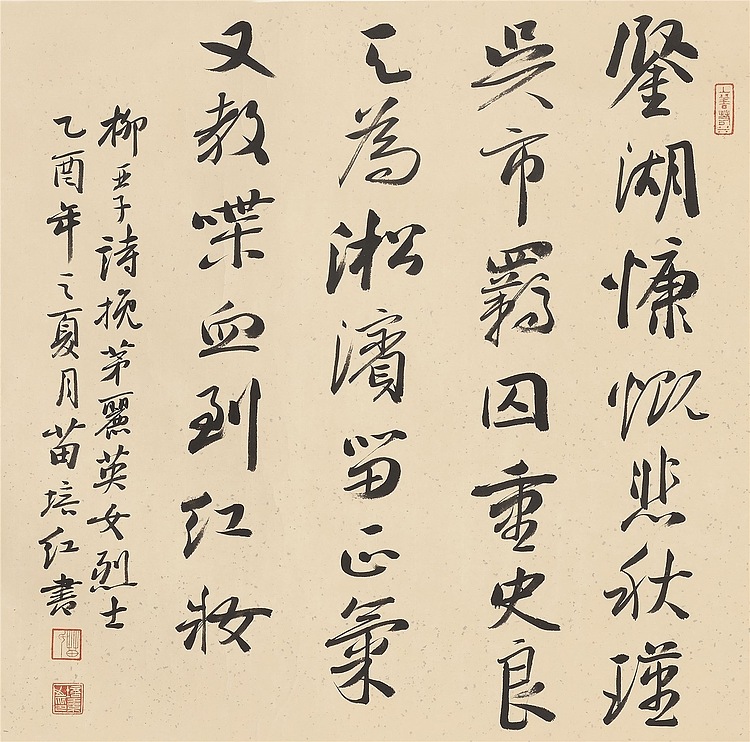 鑒湖慷慨悲秋瑾
吳市羈囚重史良
天為淞濱留正氣
又教喋血到红妝
柳亚子詩挽茅麗英女烈士
乙酉年之夏月苗培红書